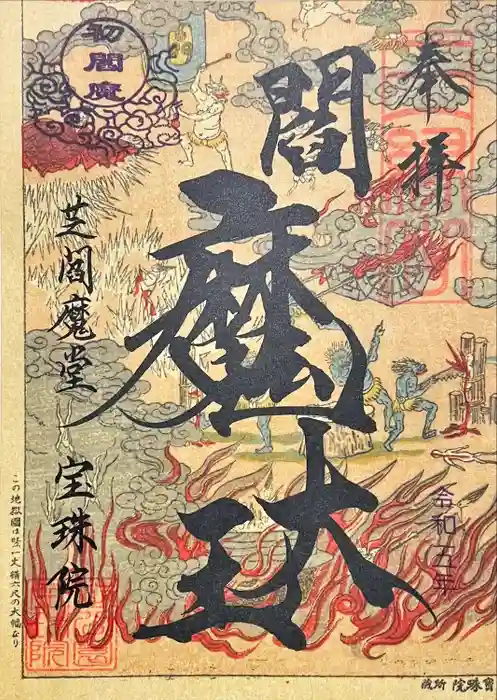 奉拝
閻魔
大王
令和五年
初閻魔
芝閻魔堂 宝珠院
この地獄圖は竪一丈横六尺の大幅なり
寶珠院 所藏